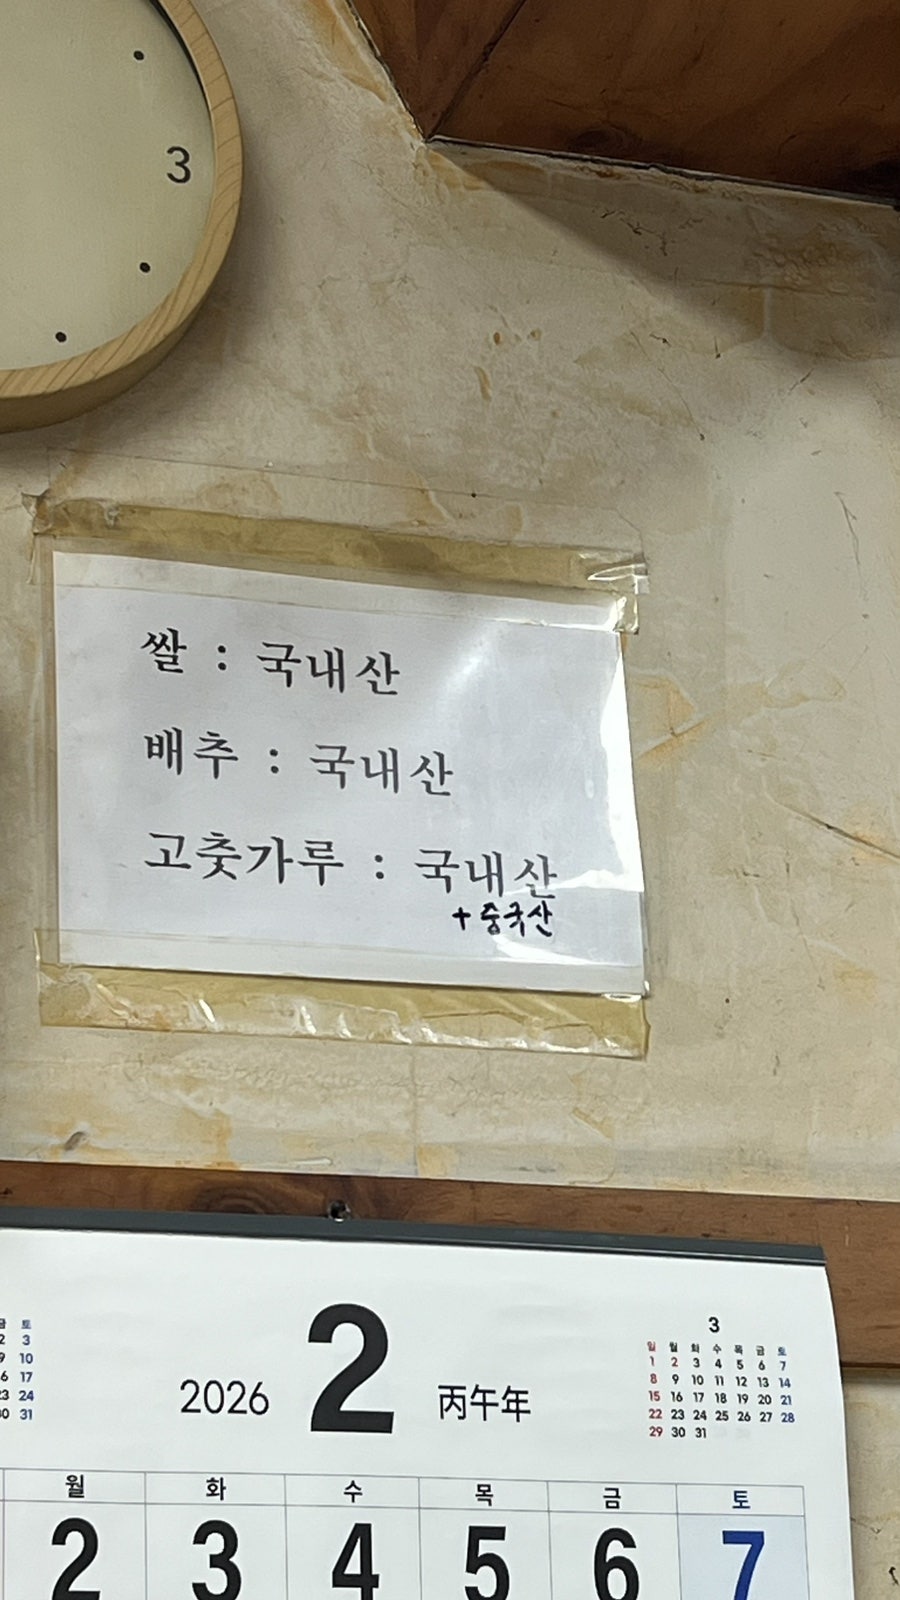 3
쌀 : 국내산
배추 : 국내산
고춧가루 : 국내산
+ 중국산
금 토
2 3
9 10
16 17
23 24
30 31
2026 2 丙午年
3
일 월 화 수 목 금 토
1 2 3 4 5 6 7
8 9 10 11 12 13 14
15 16 17 18 19 20 21
22 23 24 25 26 27 28
29 30 31
월 화 수 목 금 토
2 3 4 5 6 7